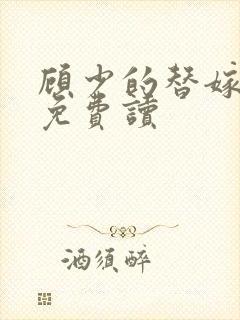 顾少的替嫁
免費讀
酒须醉